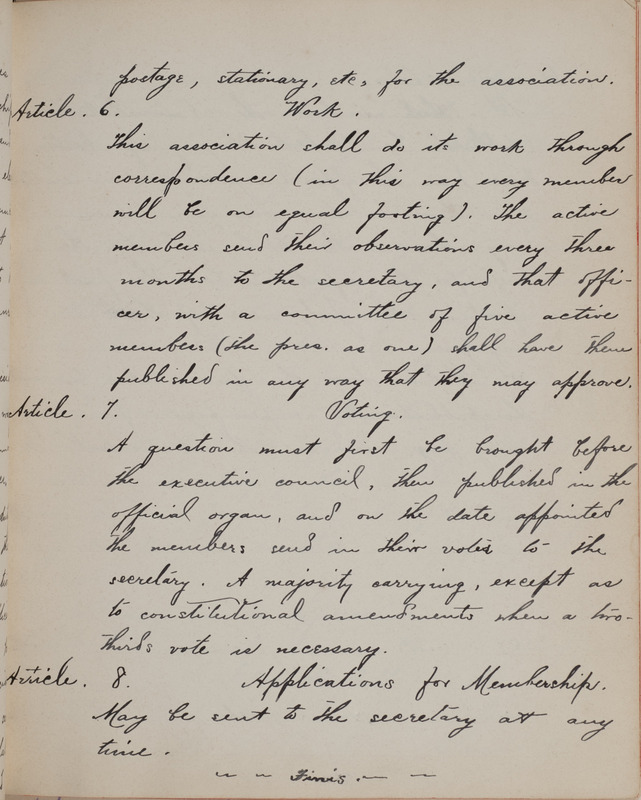 postage, stationary, etc, for the association.
Article. 6. Work.
This association shall do its work through
correspondence (in this way every member
will be on equal footing). The active
members send their observations every three
months to the secretary, and that offi-
cer, with a committee of five active
members (the pres. as one) shall have them
published in any way that they may approve.
Article. 7. Voting.
A question must first be brought before
the executive council, then published in the
official organ, and on the date appointed
the members send in their votes to the
secretary. A majority carrying, except as
to constitutional amendments when a two-
thirds vote is necessary.
Article. 8. Applications for Membership.
May be sent to the secretary at any
time.
Finis.